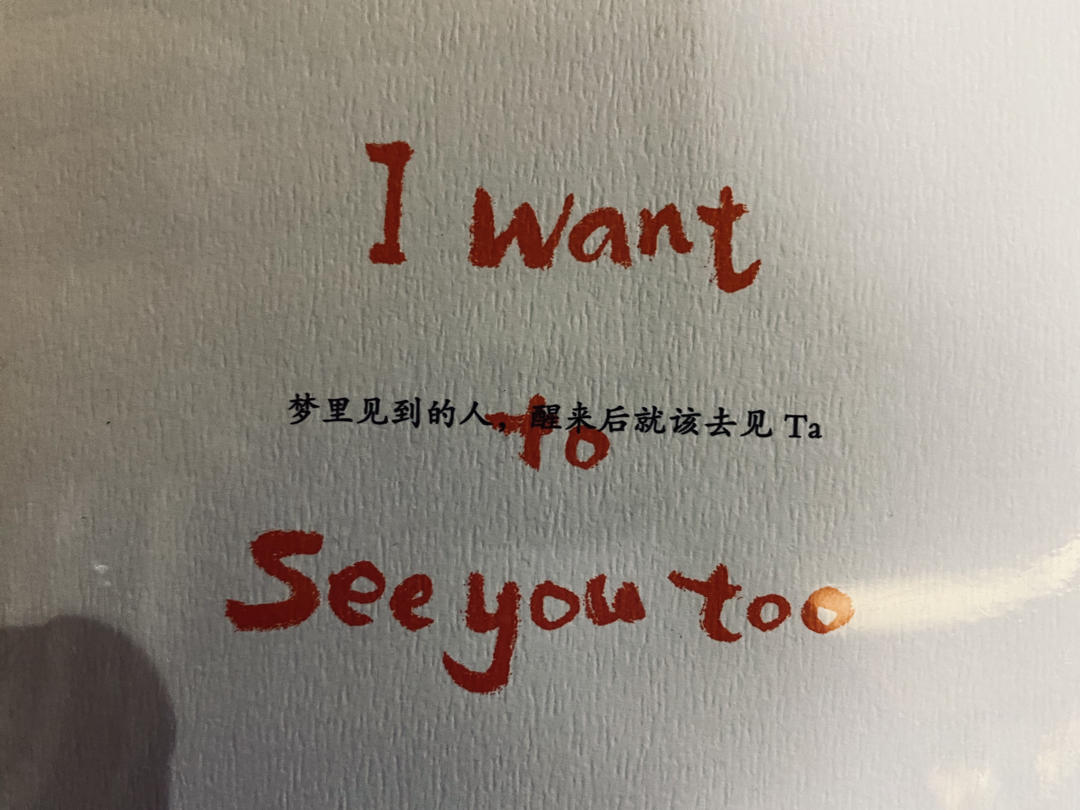 I want
梦里见到的人，醒来后就该去见 Ta
to
See you too